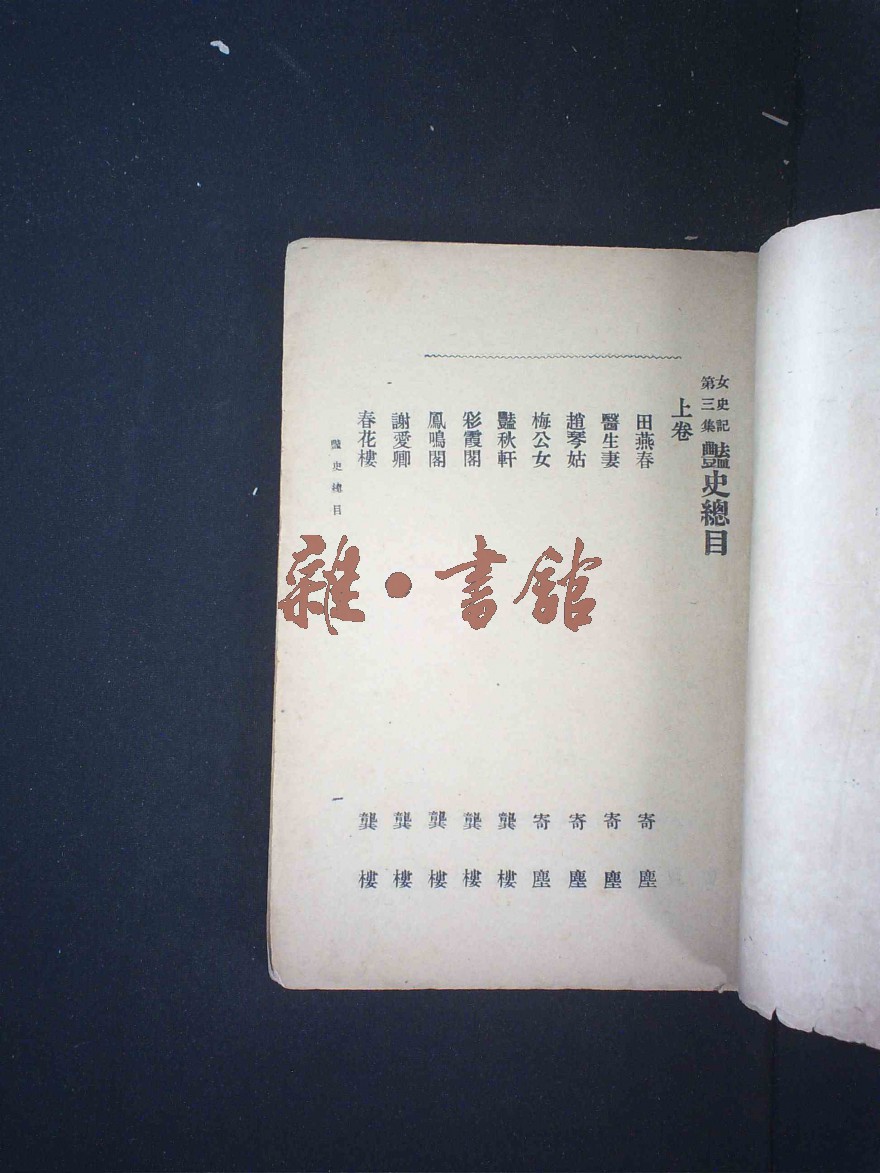 女史記
第三集
豔史總目
上卷
田燕春 寄塵
醫生妻 寄塵
趙琴姑 寄塵
梅公女 寄塵
豔秋軒 龔樓
彩霞閣 龔樓
鳳鳴閣 龔樓
謝愛卿 龔樓
春花樓 龔樓
豔史總目
一
雜·書館